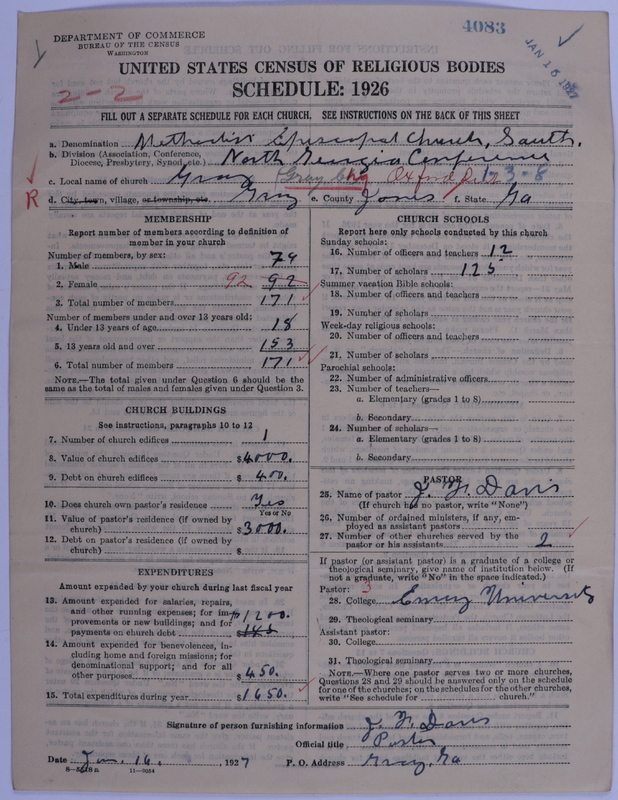 4083
DEPARTMENT OF COMMERCE
BUREAU OF THE CENSUS
WASHINGTON
JAN 18 1927
UNITED STATES CENSUS OF RELIGIOUS BODIES
2-2
SCHEDULE: 1926
FILL OUT A SEPARATE SCHEDULE FOR EACH CHURCH. SEE INSTRUCTIONS ON THE BACK OF THIS SHEET
a. Denomination Methodist Episcopal Church, South.
b. Division (Association, Conference, Diocese, Presbytery, Synod, etc.) North Georgia Conference
c. Local name of church Gray Gray Chg Oxford Dis 123-8
R
d. City, town, village, or township, etc. Gray e. County Jones f. State Ga
MEMBERSHIP
Report number of members according to definition of
member in your church
Number of members, by sex:
1. Male 79
2. Female 92 92
3. Total number of members 171
Number of members under and over 13 years old:
4. Under 13 years of age 18
5. 13 years old and over 153
6. Total number of members 171
NOTE.—The total given under Question 6 should be the
same as the total of males and females given under Question 3.
CHURCH BUILDINGS
See instructions, paragraphs 10 to 12
7. Number of church edifices 1
8. Value of church edifices $4000.
9. Debt on church edifices $ 400.
10. Does church own pastor's residence Yes
Yes or No
11. Value of pastor's residence (if owned by
church) $3000.
12. Debt on pastor's residence (if owned by
church) $
EXPENDITURES
Amount expended by your church during last fiscal year
13. Amount expended for salaries, repairs,
and other running expenses; for im-
provements or new buildings; and for
payments on church debt $1200.
14. Amount expended for benevolences, in-
cluding home and foreign missions; for
denominational support; and for all
other purposes $450.
15. Total expenditures during year $1650.
CHURCH SCHOOLS
Report here only schools conducted by this church
Sunday schools:
16. Number of officers and teachers 12
17. Number of scholars 125
Summer vacation Bible schools:
18. Number of officers and teachers
19. Number of scholars
Week-day religious schools:
20. Number of officers and teachers
21. Number of scholars
Parochial schools:
22. Number of administrative officers
23. Number of teachers—
a. Elementary (grades 1 to 8)
b. Secondary
24. Number of scholars—
a. Elementary (grades 1 to 8)
b. Secondary
PASTOR
25. Name of pastor J. F. Davis
(If church has no pastor, write "None")
26. Number of ordained ministers, if any, em-
ployed as assistant pastors
27. Number of other churches served by the
pastor or his assistants 2
If pastor (or assistant pastor) is a graduate of a college or
theological seminary, give name of institution below. (If
not a graduate, write "No" in the space indicated.)
Pastor: 3
28. College Emory University
29. Theological seminary
Assistant pastor:
30. College
31. Theological seminary
NOTE.—Where one pastor serves two or more churches,
Questions 28 and 29 should be answered only on the schedule
for one of the churches; on the schedules for the other churches,
write "See schedule for church."
Signature of person furnishing information J. F. Davis
Official title Pastor
Date Jan. 16, 1927 P. O. Address Gray, Ga
11—9054